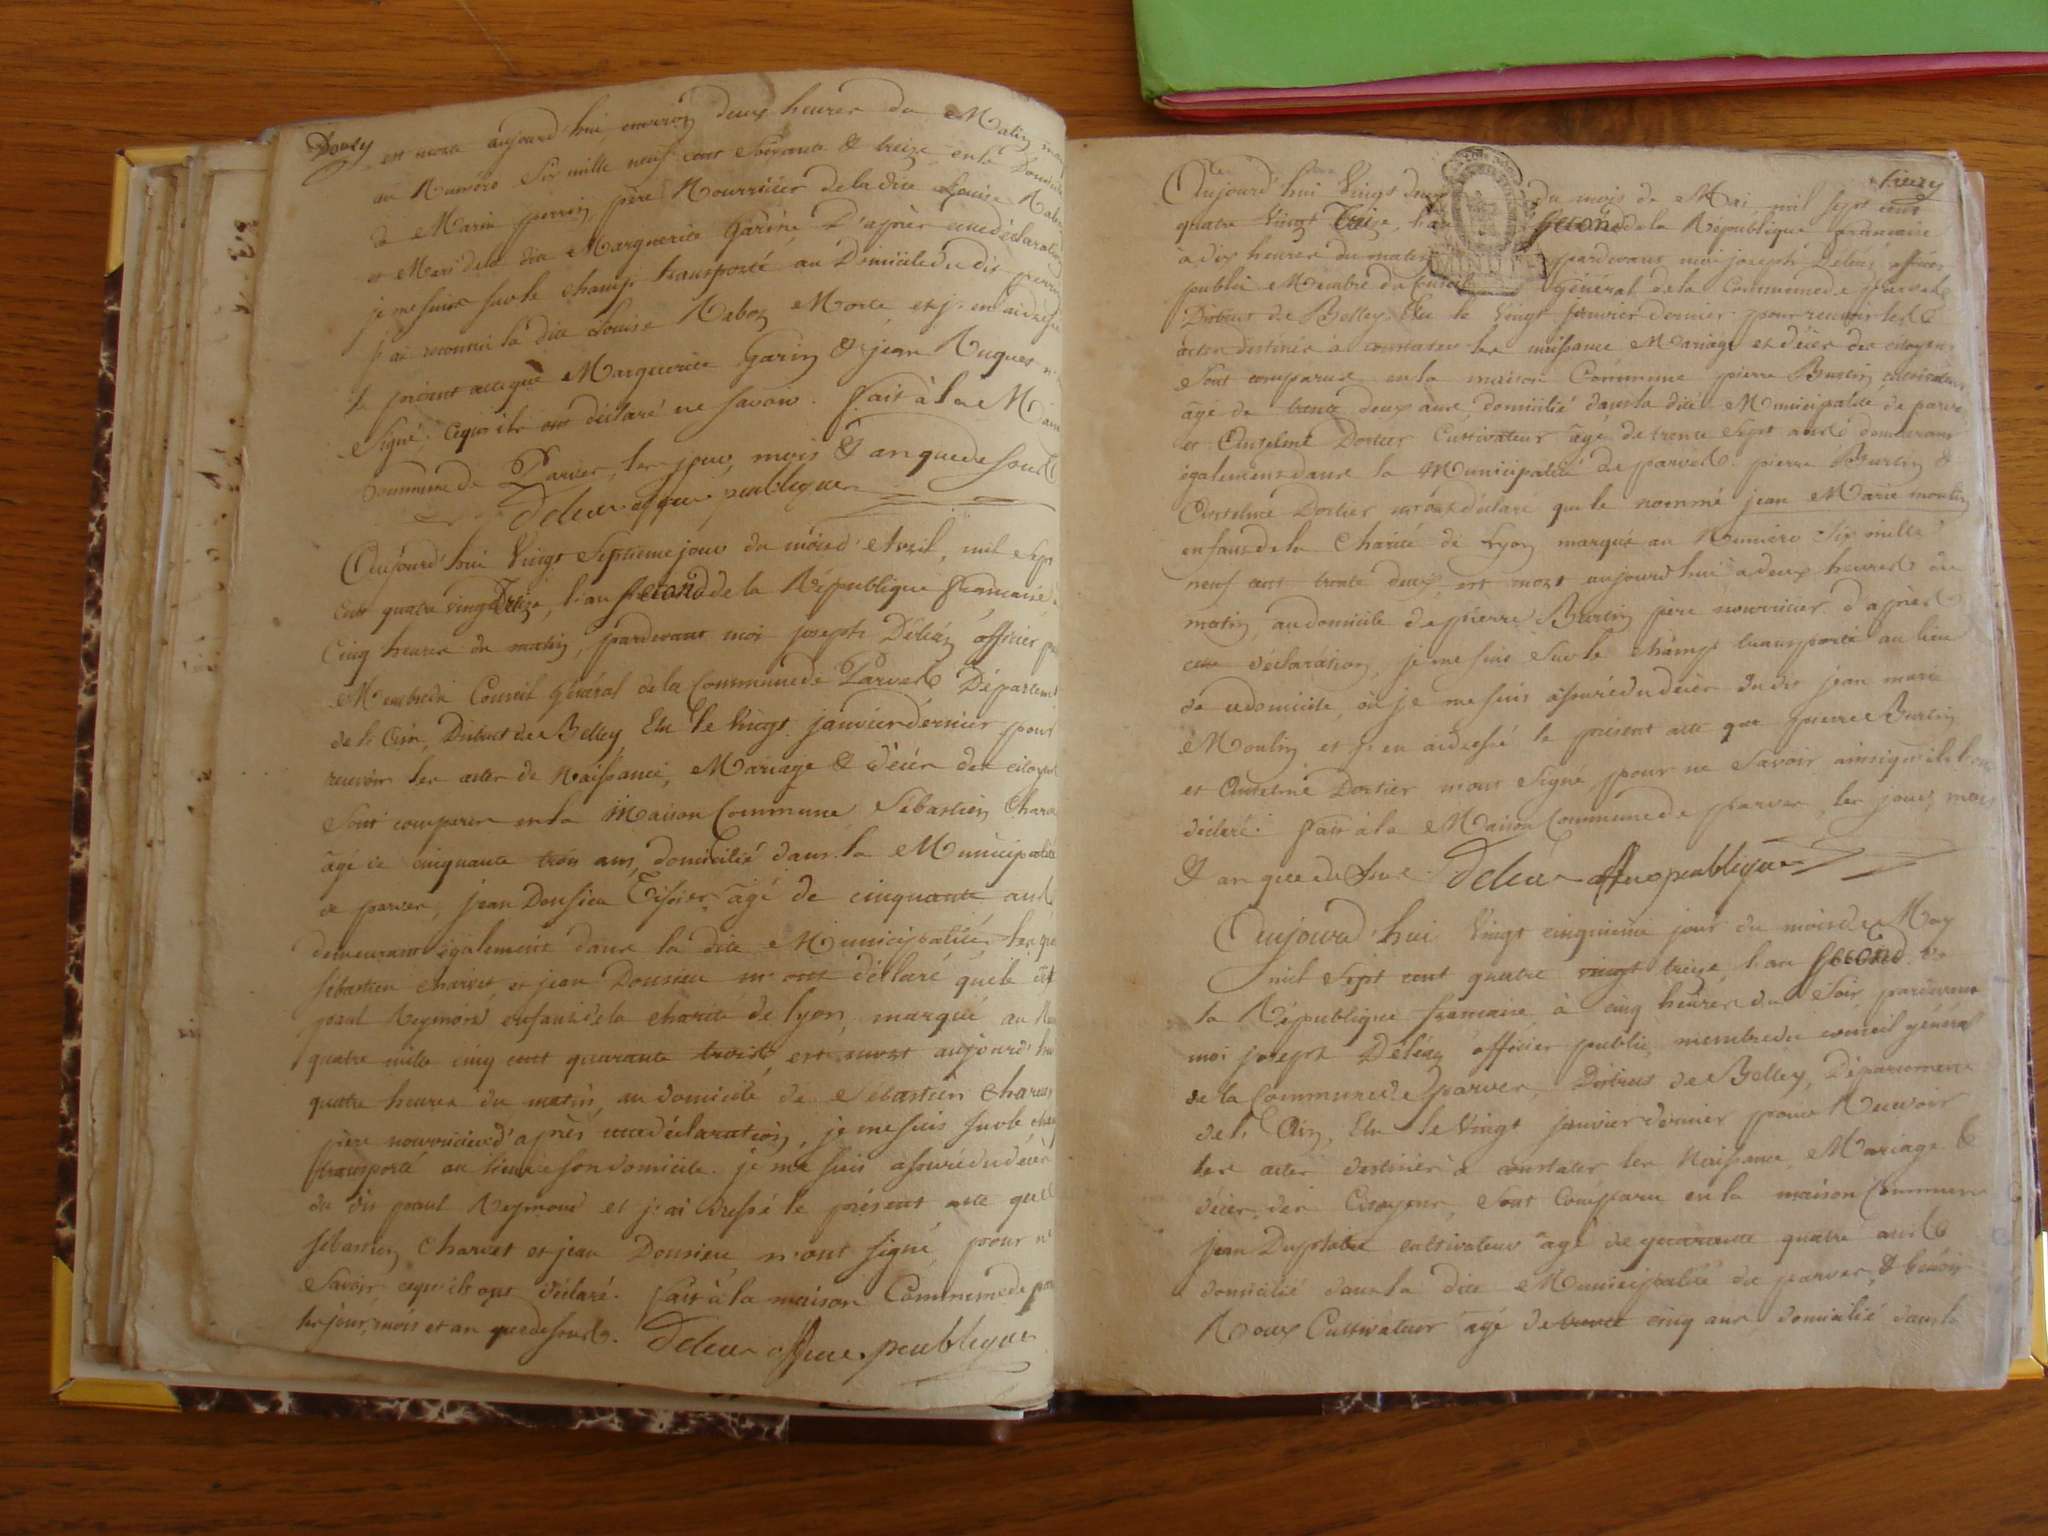 Douzy
est morte aujourd'hui environ deux heures du Matin
au Numéro Six mille neuf cent Soixante & treize en le Domicile
de Marin perrin père Nourricier de la dite Louise
et Mari de la dite Marguerite Garin, D'après cette déclaration
je me suis sur le champ transporté au Domicile du dit perrin
j'ai reconnu la dite Louise Morte et j'en ai dressé
le présent acte que Marguerite Garin & jean Hugues
Signé, ce qu'ils ont déclaré ne savoir. fait à la
Commune de Parves, les jour, mois & an que de sous
officier publique
Aujourd'hui Vingt Septieme jour du mois d'Avril, mil Sept
Cent quatre vingt Treize, l'an second de la République française
Cinq heures du matin, pardevant moi joseph officier
Membre du Conseil Général de la Commune de Parves Département
de l'Ain, District de Belley Elu le Vingt janvier dernier pour
recevoir les actes de Naissance, Mariage & décès des citoyens
Sont comparus en la Maison Commune Sébastien
âgé de cinquante trois ans, domicilié dans la Municipalité
de parves, jean Dousieu Tissier âgé de cinquante ans
demeurant également dans la dite Municipalité,
Sébastien charvet et jean Dousieu m'ont déclaré que le
paul Reymond enfant de la charité de lyon, marqué au
quatre mille cinq cent quarante trois, est mort aujourd'hui
quatre heures du matin, au domicile de Sébastien charvet
père nourricier d'après cette déclaration, je me suis sur le
transporté au lieu de son domicile. je me suis assuré du décès
du dit paul Reymond et j'ai dressé le présent acte que
Sébastien Charvet et jean Dousieu n'ont signé pour ne
Savoir ce qu'ils ont déclaré. fait à la maison Commune de
les jour, mois et an que dessous.
officier publique
Aujourd'hui Vingt deux du mois de Mai mil sept cent
quatre Vingt Treize, l'an second de la République française
à dix heures du matin pardevant moi joseph officier
public Membre du Conseil général de la Commune de parves
District de Belley. Elu le Vingt janvier dernier pour recevoir les
actes destinés à constater les naissance Mariage et décès des citoyens
Sont comparus en la maison Commune pierre Burtin cultivateur
âgé de trente deux ans, domicilié dans la dite Municipalité de parves
et Antelme Dortier Cultivateur âgé de trente Sept ans demeurant
également dans la Municipalité de parves. pierre Burtin &
Antelme Dortier m'ont déclaré que le nommé jean Marie moulin
enfant de la Charité de Lyon marqué au Numéro Six mille
neuf cent trente deux, est mort aujourd'hui à deux heures du
matin, au domicile de pierre Burtin père nourricier d'après
cette déclaration, je me suis Sur le champ transporté au lieu
de ce domicile, où je me suis assuré du décès du dit jean marie
Moulin et j'en ai dressé le présent acte que pierre Burtin
et Antelme Dortier n'ont Signé, pour ne Savoir ainsi qu'ils l'ont
déclaré. fait à la Maison Commune de parves, les jour, mois
& an que de sous. officier publique
Aujourd'hui Vingt cinquieme jour du mois de May
mil Sept cent quatre vingt treize, l'an second de
la République française à cinq heures du Soir pardevant
moi joseph officier public, membre du conseil général
de la Commune de parves, District de Belley, Département
de l'Ain, Elu le Vingt janvier dernier pour Recevoir
les actes destinés à constater les Naissance, Mariage &
décès des Citoyens, Sont Comparu en la maison Commune
jean Duplatre cultivateur âgé de quarante quatre ans
domicilié dans la dite Municipalité de parves, & benoit
Roux Cultivateur âgé de trente cinq ans domicilié dans la